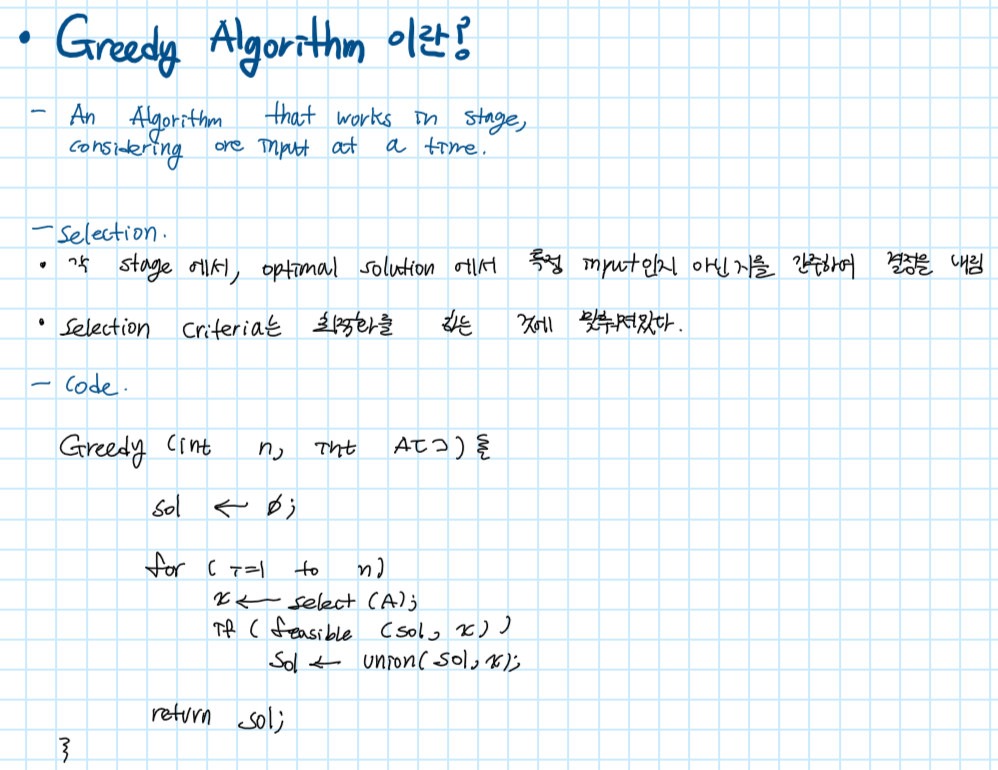 • Greedy Algorithm 이란?
- An Algorithm that works in stage,
considering one input at a time.
- Selection.
• 각 stage 에서, optimal solution 에서 특정 input인지 아닌지를 간주하여 결정을 내림
• Selection criteria는 최적화를 하는 것에 맞추어져있다.
- Code.
Greedy (int n, int A[]) {
sol ← ∅;
for (i=1 to n)
x ← select (A);
if (feasible (sol, x))
sol ← union(sol, x);
return sol;
}